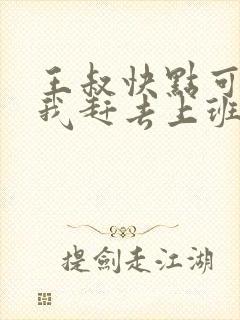 王叔快點可
我赶去上班
提劍走江湖